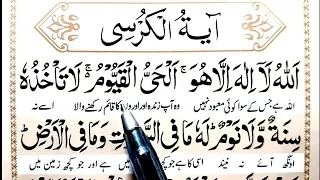 آیةُ الکُرسی
اَللّٰهُ لَاۤ اِلٰهَ اِلَّا هُوَ ۚ اَلْحَیُّ الْقَیُّوْمُ ۚ لَا تَاْخُذُهٗ
اللہ ہے جس کے سوا کوئی معبود نہیں وہ آپ زندہ اور اوروں کا قائم رکھنے والا اسے نہ
سِنَةٌ وَّلَا نَوْمٌ ؕ لَهٗ مَا فِی وَمَا فِی الْاَرْضِ ؕ
اونگھ آئے نہ نیند اسی کا ہے جو کچھ میں ہے اور جو کچھ زمین میں